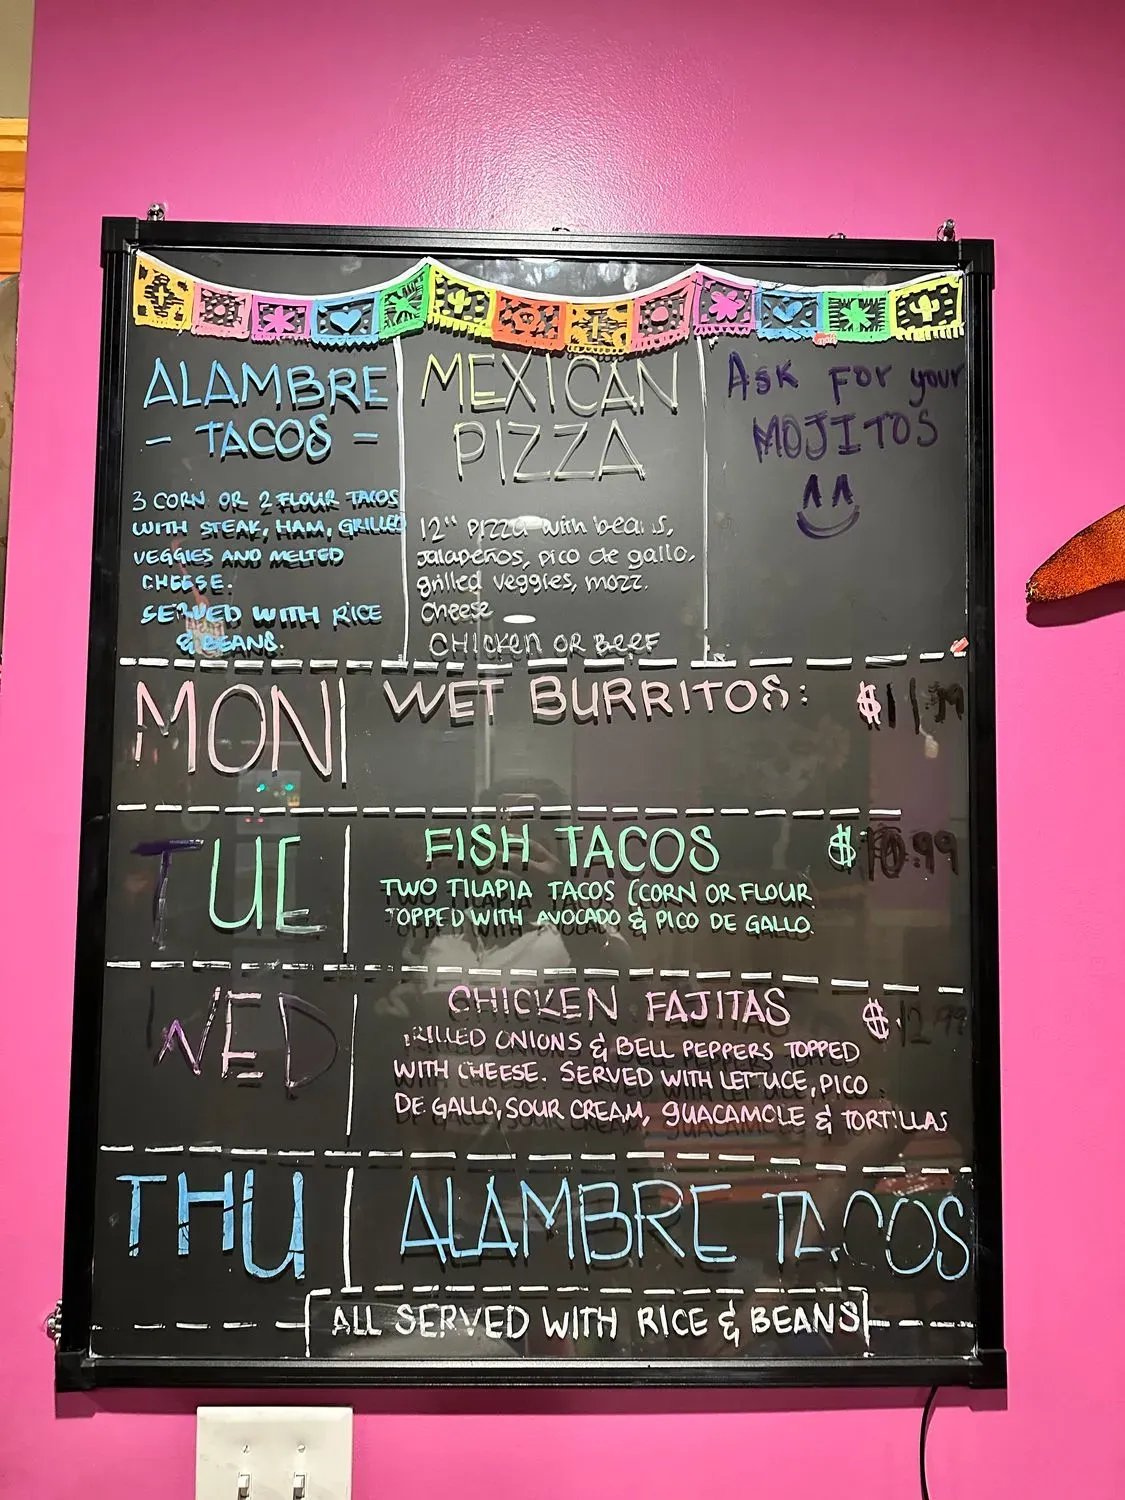 ALAMBRE
- TACOS -
3 CORN OR 2 FLOUR TACOS
WITH STEAK, HAM, GRILLED
VEGGIES AND MELTED
CHEESE.
SERVED WITH RICE
& BEANS.
MEXICAN
PIZZA
12" pizza with beans,
jalapeños, pico de gallo,
grilled veggies, mozz.
cheese
CHICKEN OR BEEF
Ask For your
MOJITOS
MON WET BURRITOS: $11.99
TUE FISH TACOS $10.99
TWO TILAPIA TACOS (CORN OR FLOUR
TOPPED WITH AVOCADO & PICO DE GALLO.
WED CHICKEN FAJITAS $12.99
GRILLED ONIONS & BELL PEPPERS TOPPED
WITH CHEESE. SERVED WITH LETTUCE, PICO
DE GALLO, SOUR CREAM, GUACAMOLE & TORTILLAS
THU ALAMBRE TACOS
ALL SERVED WITH RICE & BEANS